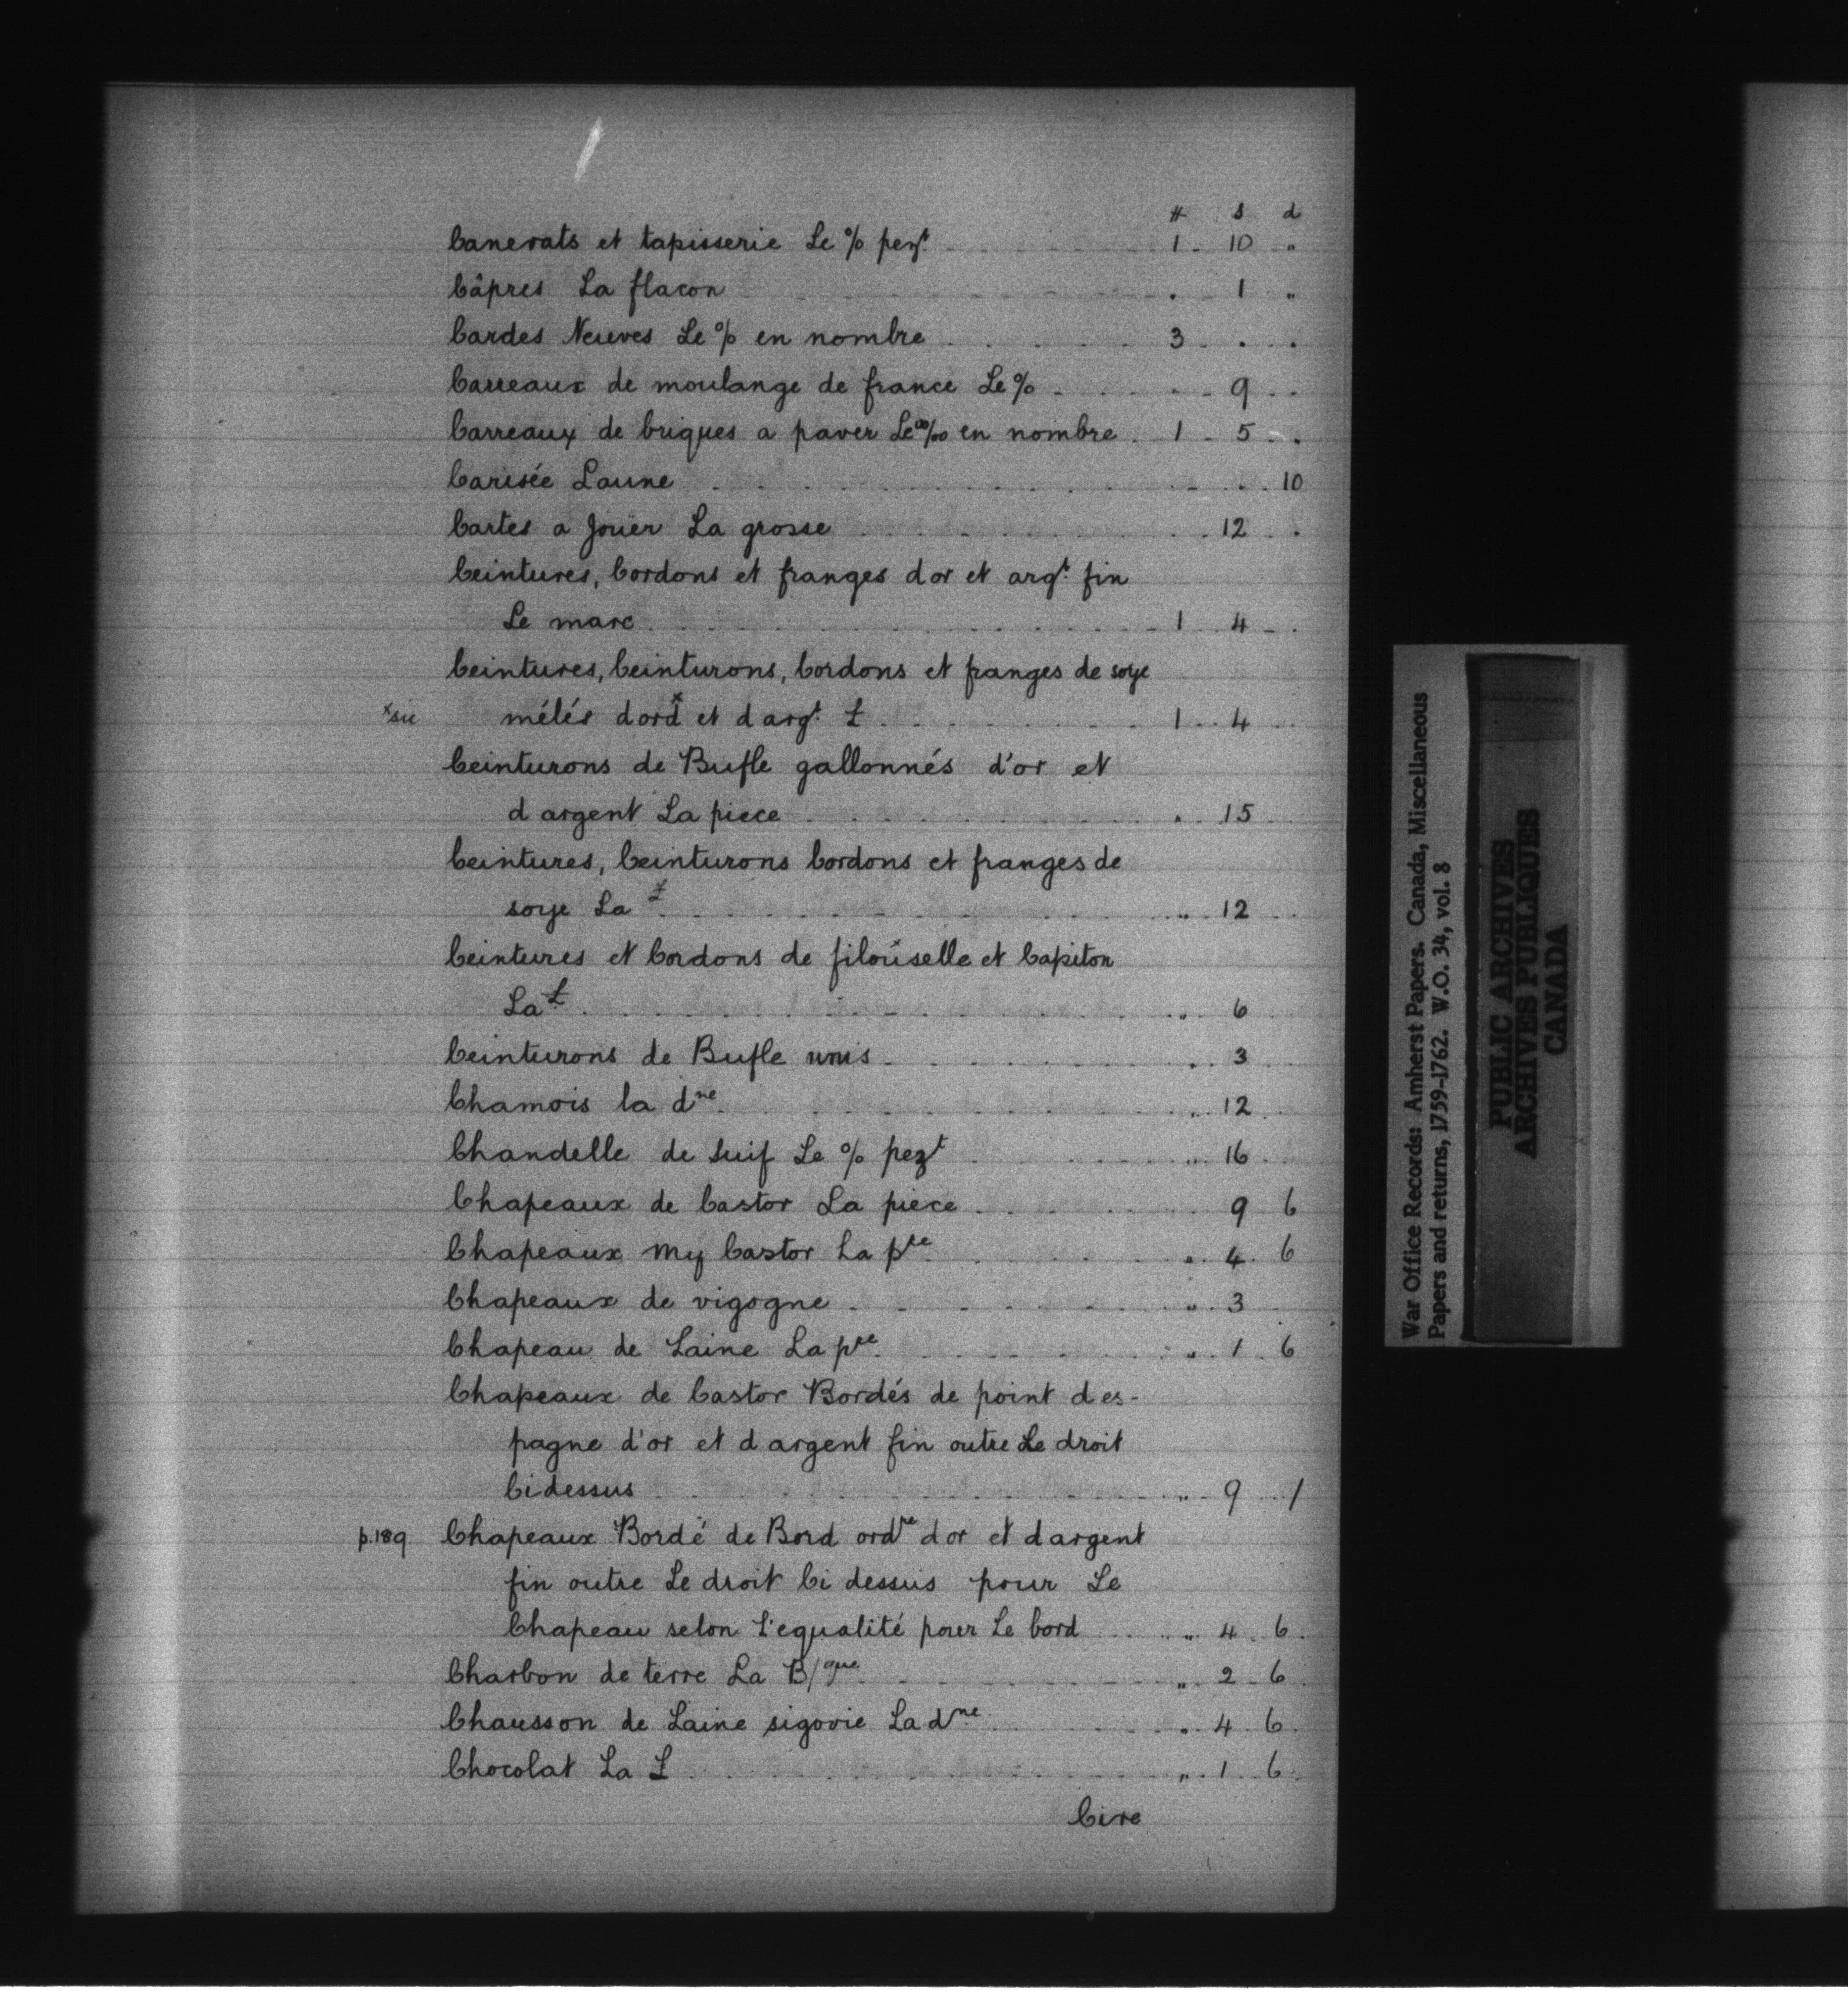 # s d
Canevats et tapisserie Le % pezt. 1 10 "
Câpres La flacon . 1 "
Cardes Neuves Le % en nombre 3 . .
Carreaux de moulange de france Le % 9
Carreaux de briques a paver Le 00/00 en nombre 1 5 .
Carisée Laune 10
Cartes a Jouër La grosse 12 .
Ceintures, Cordons et franges dor et argt. fin
Le marc 1 4 .
Ceintures, Ceinturons, Cordons et franges de soye
x sic mélés dord x et dargt. £ 1 4
Ceinturons de Bufle gallonnés d'or et
d argent La piece . 15
Ceintures, Ceinturons Cordons et franges de
soye La £ " 12
Ceintures et Cordons de filoüselle et Capiton
La £ " 6
Ceinturons de Bufle unis . 3
Chamois la dne " 12
Chandelle de Suif Le % pezt " 16
Chapeaux de Castor La piece 9 6
Chapeaux my Castor La pce " 4 6
Chapeaux de vigogne " 3
Chapeau de Laine La pce " 1 6
Chapeaux de Castor Bordés de point des-
pagne d'or et d argent fin outre Le droit
Cidessus " 9 /
p.189 Chapeaux Bordé de Bord ordre dor et dargent
fin outre Le droit Ci dessus pour Le
Chapeau selon L'equalité pour Le bord " 4 6
Charbon de terre La B/que " 2 6
Chausson de Laine sigovie La dne " 4 6
Chocolat La £ " 1 6
Cire
War Office Records: Amherst Papers. Canada, Miscellaneous
Papers and returns, 1759-1762. W.O. 34, vol. 8
PUBLIC ARCHIVES
ARCHIVES PUBLIQUES
CANADA